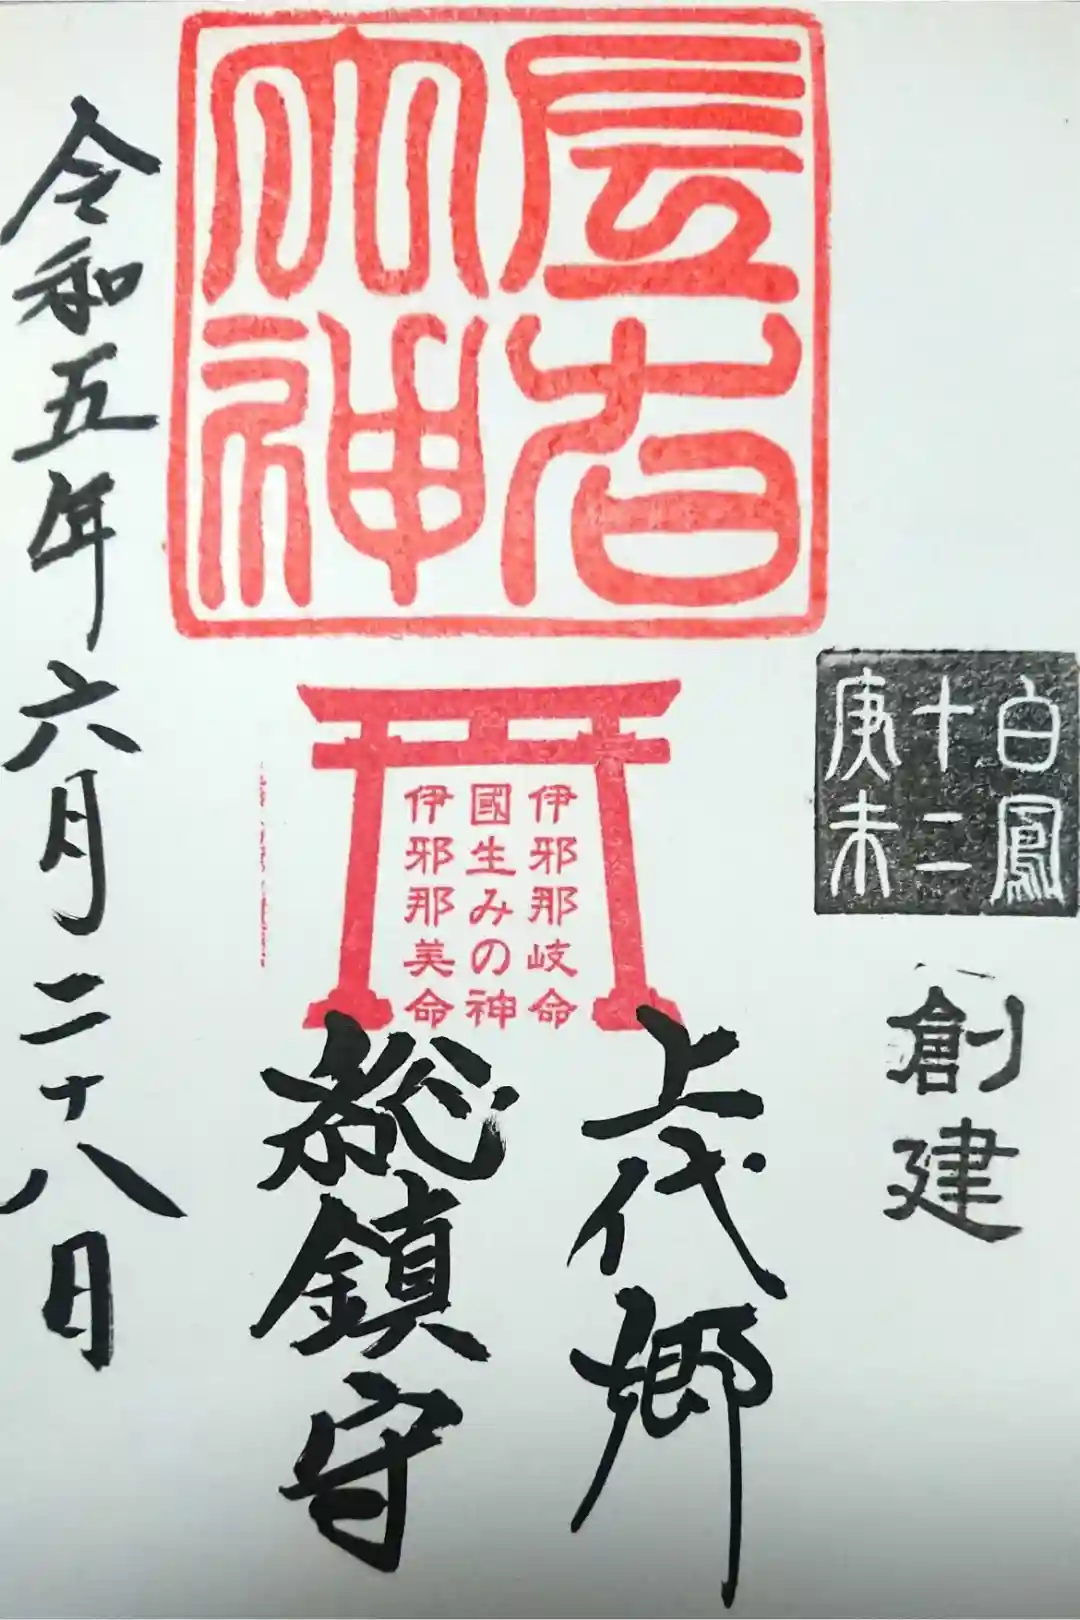 左右
大神
白鳳
十二
庚未
創建
伊邪那岐命
國生みの神
伊邪那美命
上代郷
総鎮守
令和五年六月二十八日